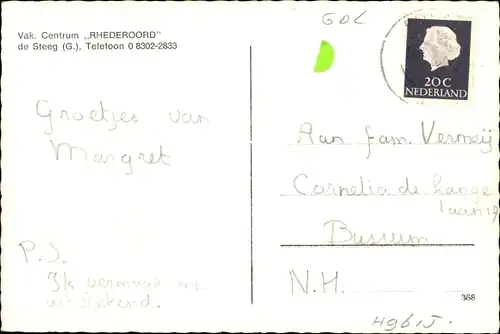 Vak. Centrum „RHEDEROORD”
de Steeg (G.), Telefoon 0 8302-2833
GDL
20 C
NEDERLAND
Groetjes van
Margret
P.S.
Ik vermaak me
uitstekend.
Aan fam. Vermeij
Cornelia de Lange
laan 19
Bussum
N.H.
368